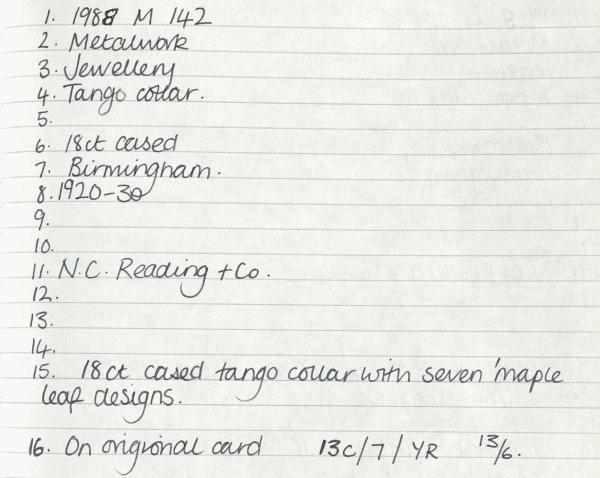 1. 1988 M 142
2. Metalwork
3. Jewellery
4. Tango collar.
5.
6. 18ct cased
7. Birmingham.
8. 1920-30
9.
10.
11. N.C. Reading + Co.
12.
13.
14.
15. 18ct cased tango collar with seven 'maple
leaf designs.
16. On origional card 13C/7/YR 13/6.